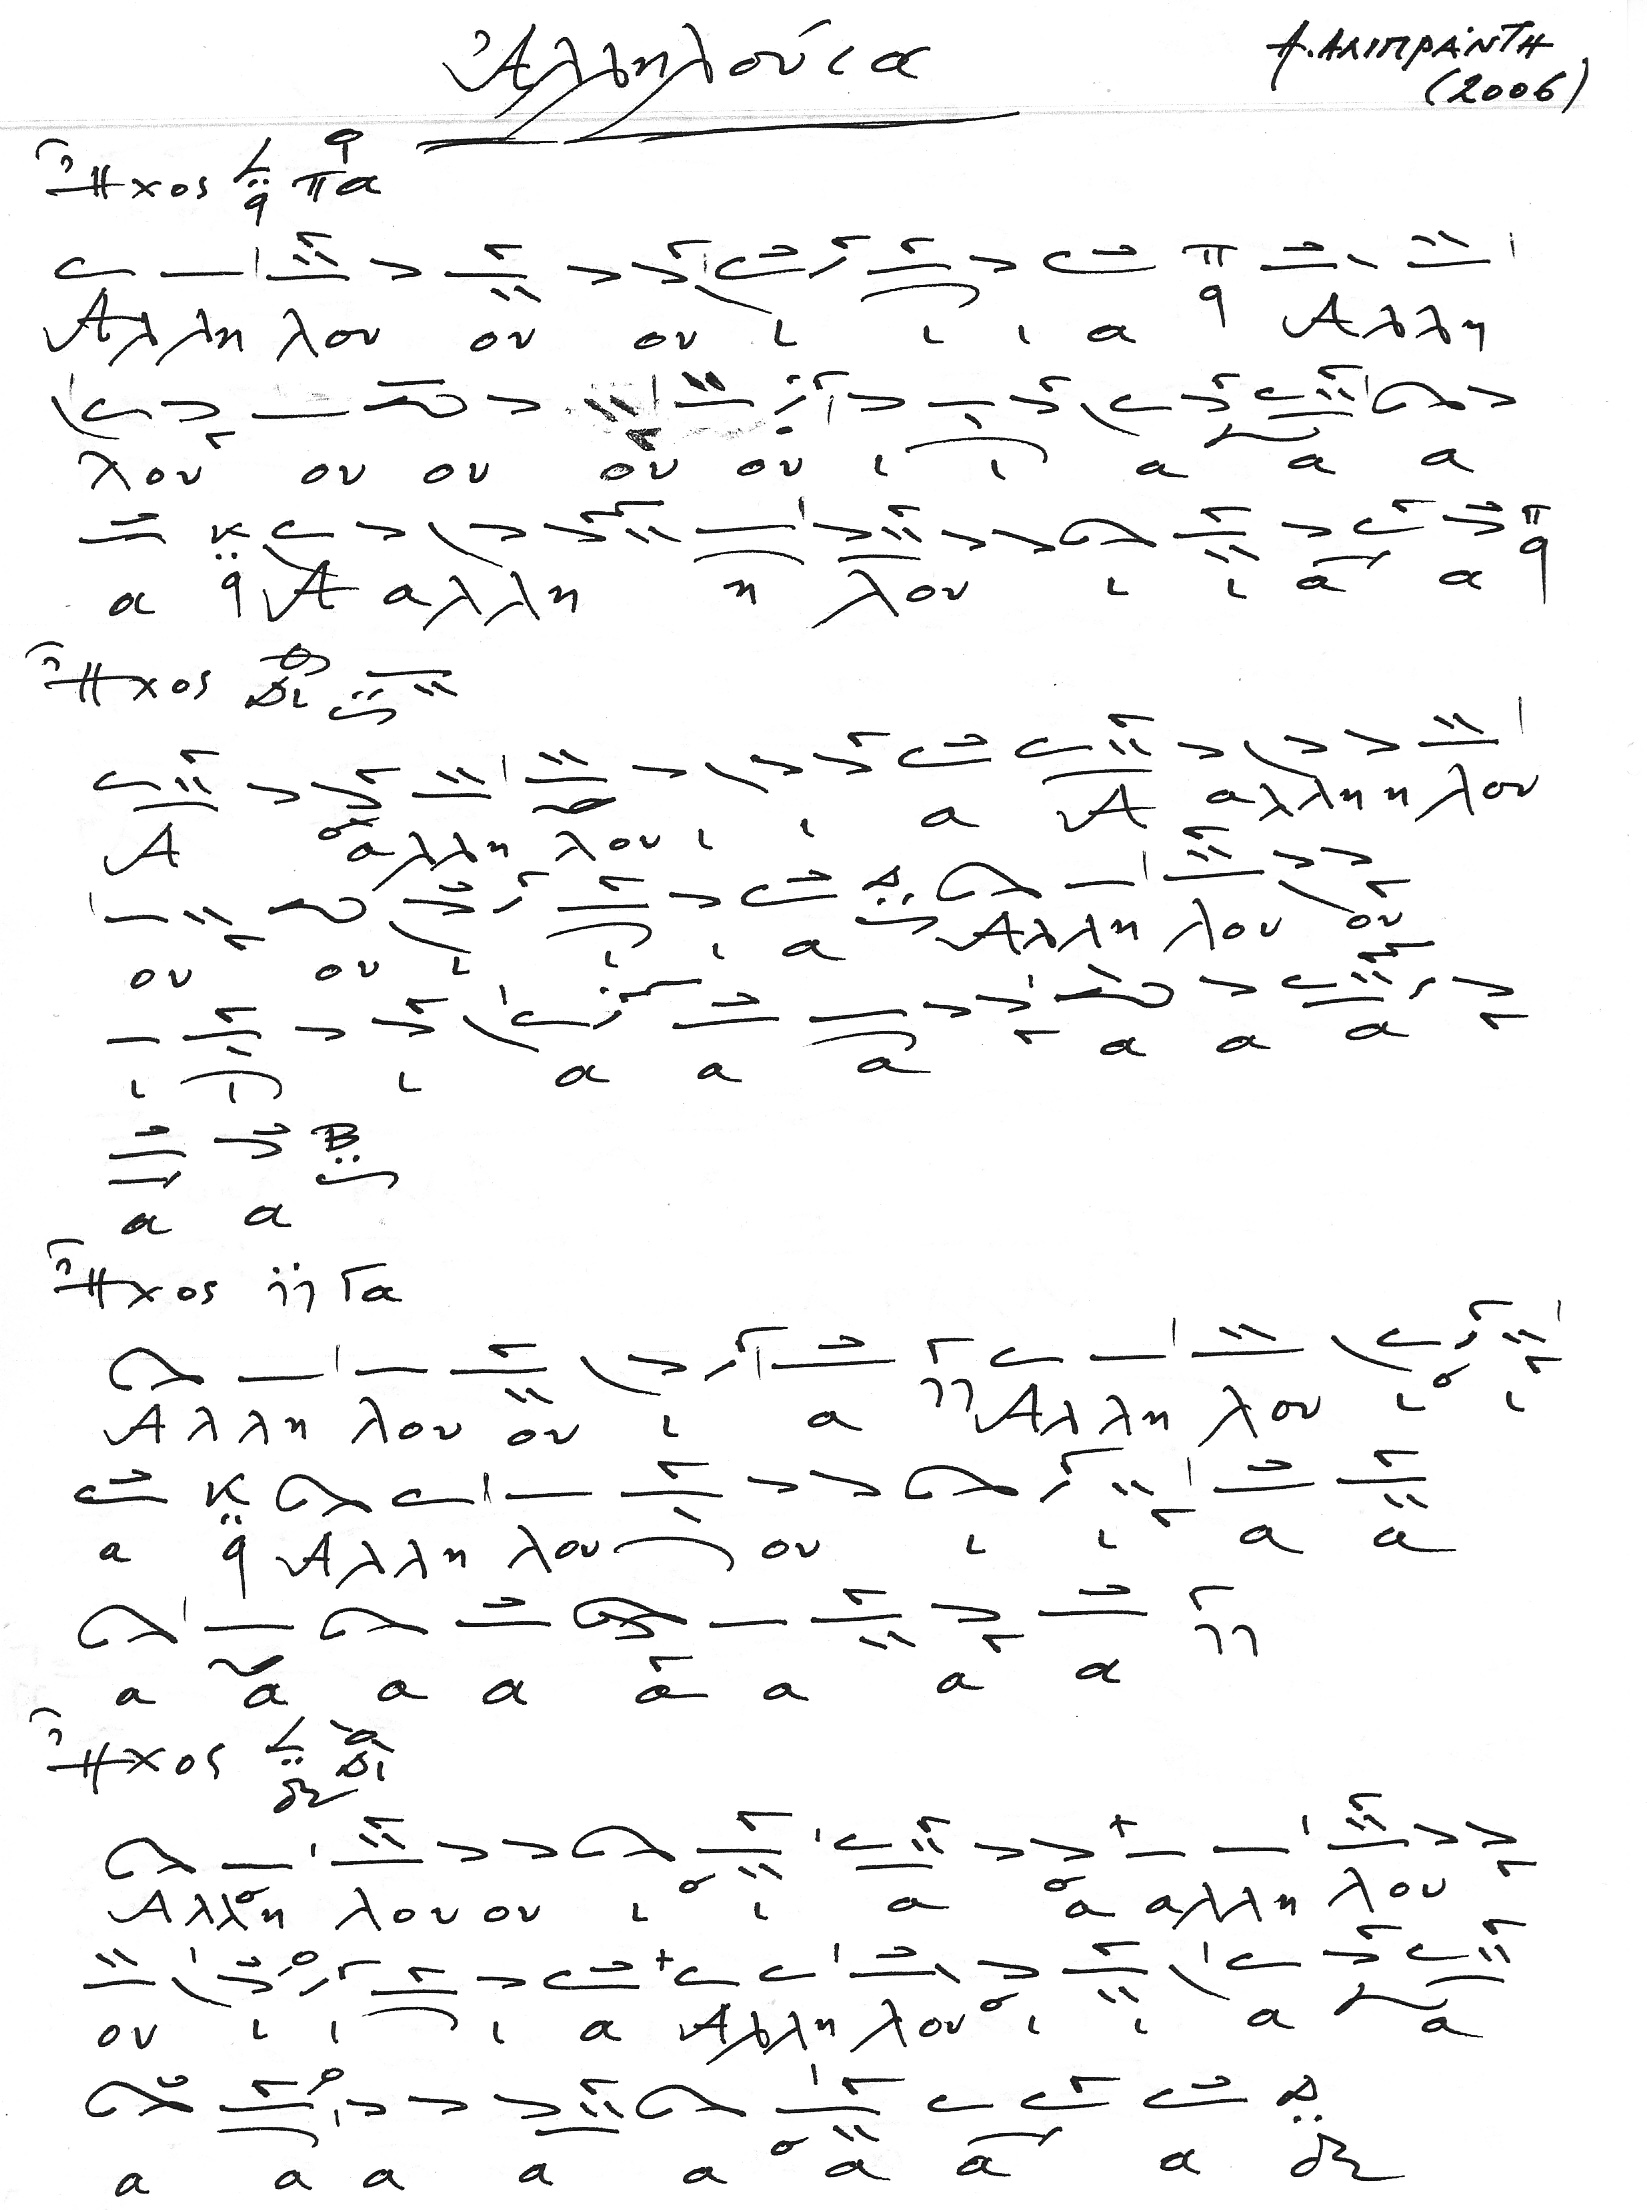 Ἀλληλούια
Α. ΑΛΙΠΡΑΝΤΗ
(2006)
Ἦχος πα
Αλλη λου ου ου ι ι ι α π Αλλη
λου ου ου ου ου ι ι α α α
α κ Α αλλη η λου ι ι α α π
Ἦχος Δι
Α αλλη λου ι ι α Α αλλη η λου
ου ου ι ι ι α Δ Αλλη λου ου
ι ι ι α α α α α α
α α Β
Ἦχος Γα
Αλλη λου ου ι α Γ Αλλη λου ι ι
α κ Αλλη λου ου ι ι α α
α α α α α α α α Γ
Ἦχος Δι
Αλλη λου ου ι ι α α αλλη λου
ου ι ι ι α Αλλη λου ι ι α α
α α α α α α α α Δ